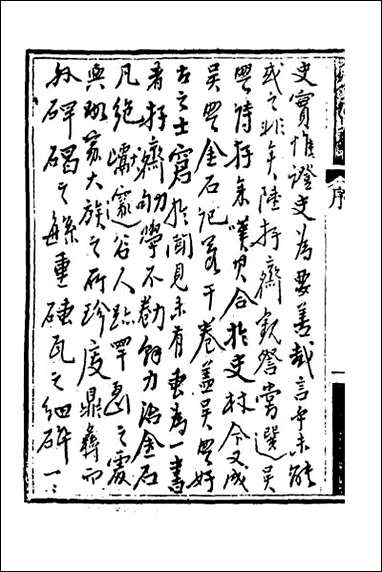 史實惟證史為要善哉言乎未能
或之非矣陸存齋觀詧嘗選吳
興詩存余嘆其合於史林今又成
吳興金石記若干卷蓋吳興好
古之士窮於聞見未有專為一書
者存齋劬學不勌餘力治金石
凡絕巘邃谷人跡罕到之處
與故家大族之所珍庋鼎彝而
外碑碣之繁重磚瓦之細碎一一
序